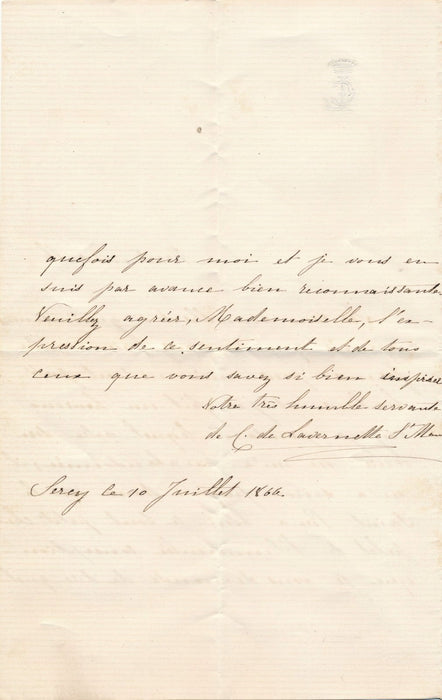 quefois pour moi et je vous en
suis par avance bien reconnaissante
Veuillez agréer, Mademoiselle, l'ex-
pression de ce sentiment et de tous
ceux que vous savez si bien inspirer
Votre très humble servante
de C. de Lavernette St
Sercy le 10 Juillet 1866.